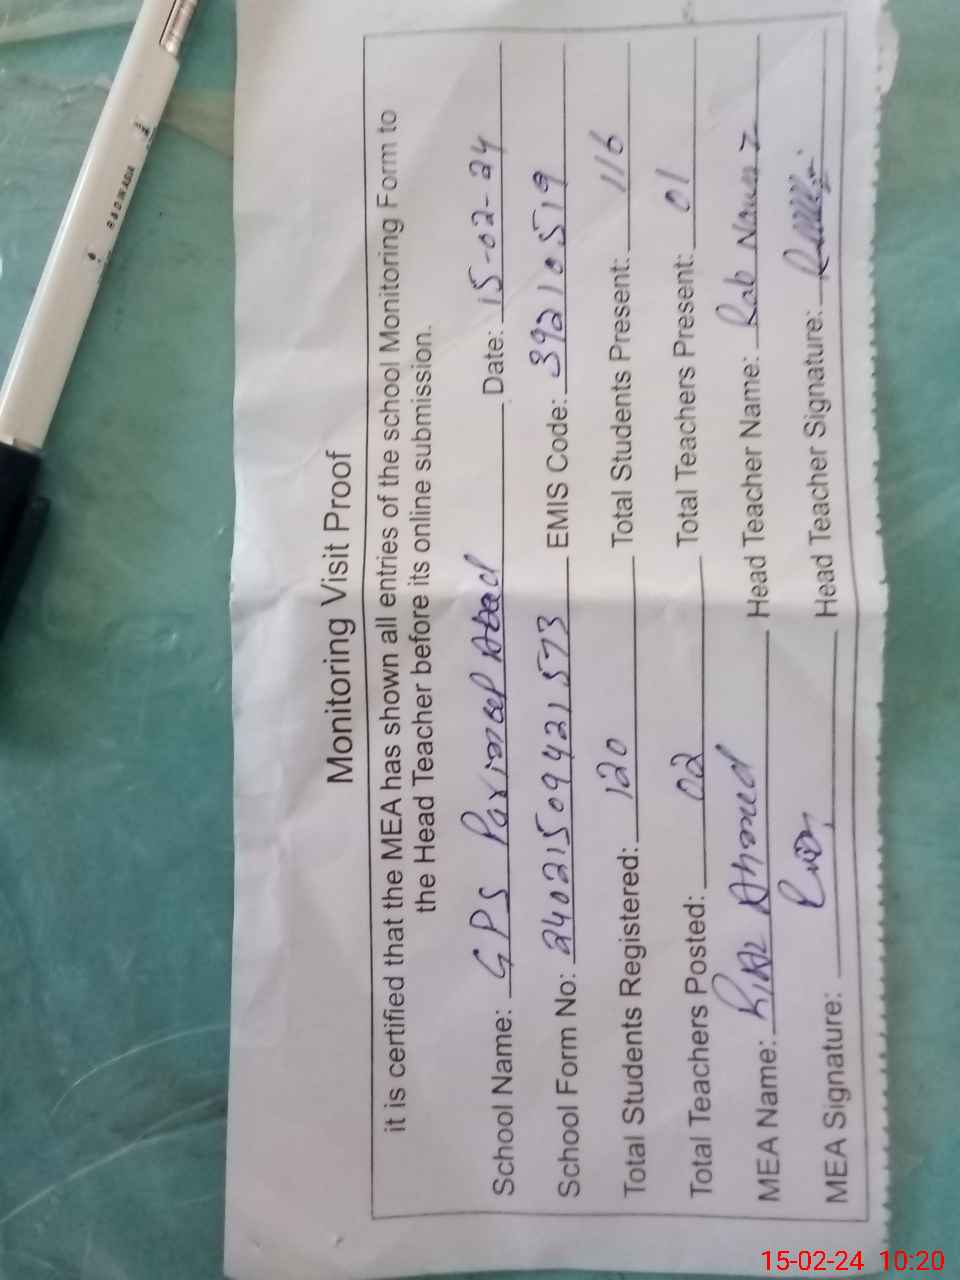 Monitoring Visit Proof
it is certified that the MEA has shown all entries of the school Monitoring Form to
the Head Teacher before its online submission.
School Name: GPS Abad Date: 15-02-24
School Form No: 24021509421573 EMIS Code: 39210519
Total Students Registered: 120 Total Students Present: 116
Total Teachers Posted: 02 Total Teachers Present: 01
MEA Name: Riaz Ahmed Head Teacher Name: Rab Nawaz
MEA Signature: Head Teacher Signature:
R & D IN ASIA
15-02-24 10:20